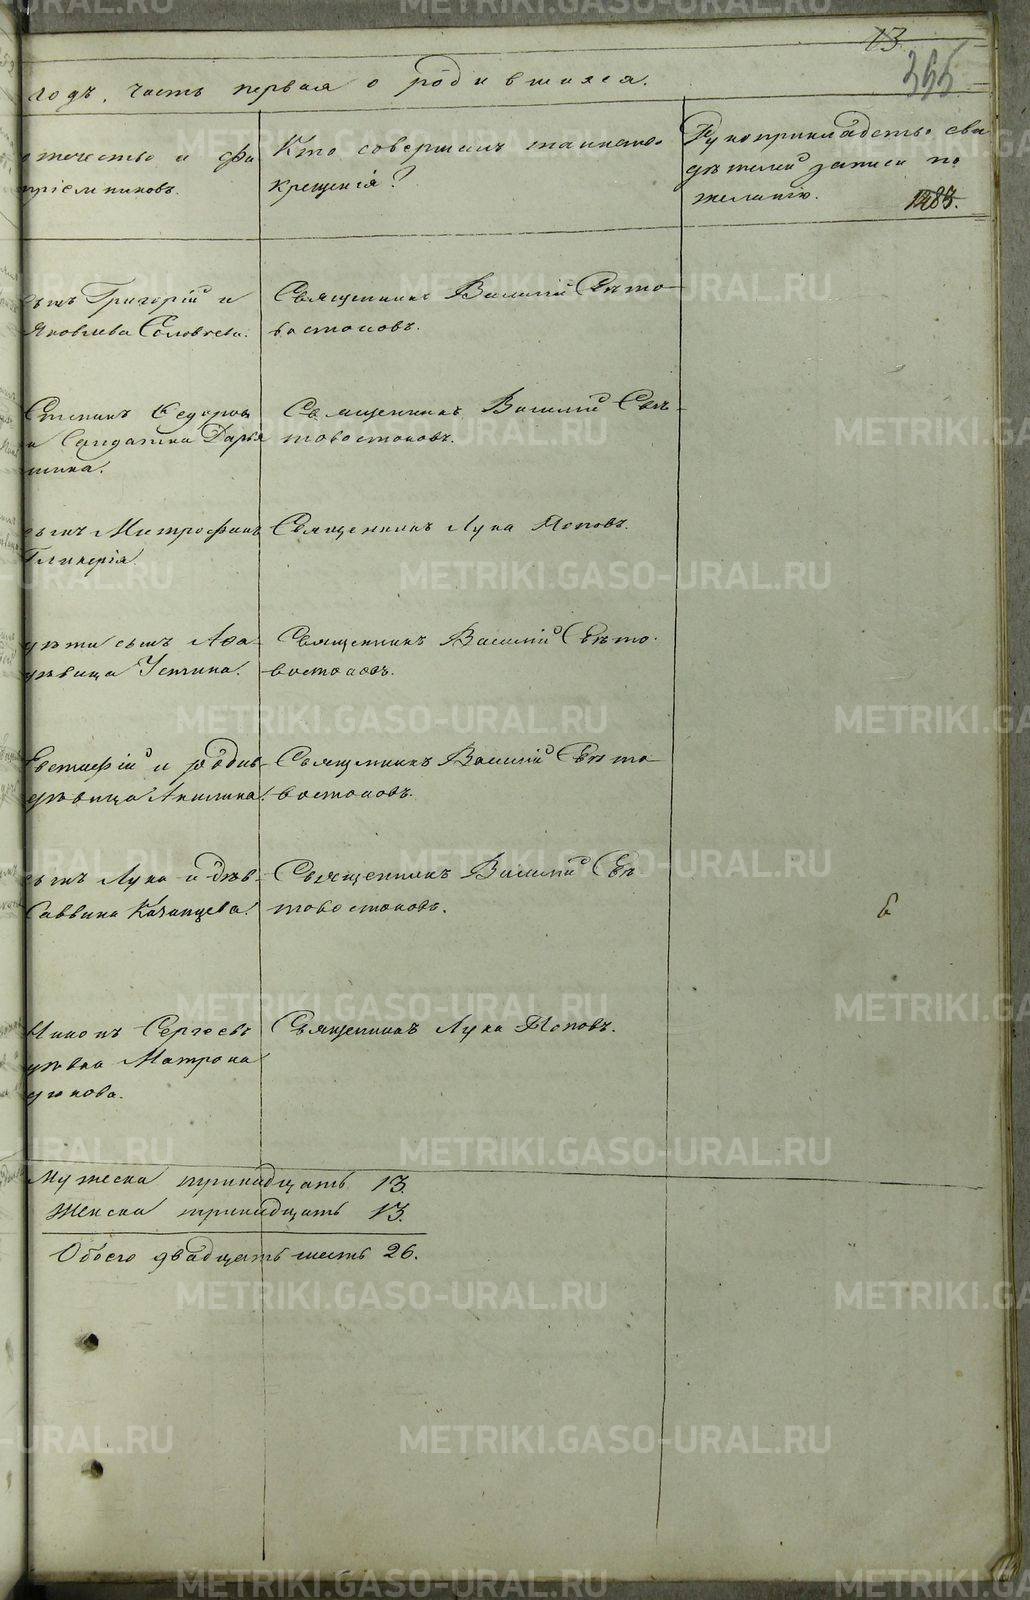 13
годъ, часть первая о родившихся.
отечество и фа
пріемниковъ.
Кто совершалъ таинство
крещенія?
Рукоприкладство сви
дѣтелей записи по
желанію.
сынъ Григорій и
Яковлева Соловьева.
Священникъ Василій Свѣто-
востоковъ.
Степанъ Ѳедоров
и Солдатка Дарья
Священникъ Василій Свѣ-
товостоковъ.
сынъ Митрофанъ
Гликерія.
Священникъ Лука Поповъ.
дѣвица Устина.
Священникъ Василій Свѣто-
востоковъ.
Евстафій и родив-
дѣвица Акилина.
Священникъ Василій Свѣто-
востоковъ.
сынъ Лука и дѣв-
Саввина Казанцева.
Священникъ Василій Свѣ-
товостоковъ.
Никонъ Сергѣевъ
дѣвка Матрона
Священникъ Лука Поповъ.
Мужеска тринадцать 13.
Женска тринадцать 13.
Обоего двадцать шесть 26.
METRIKI.GASO-URAL.RU